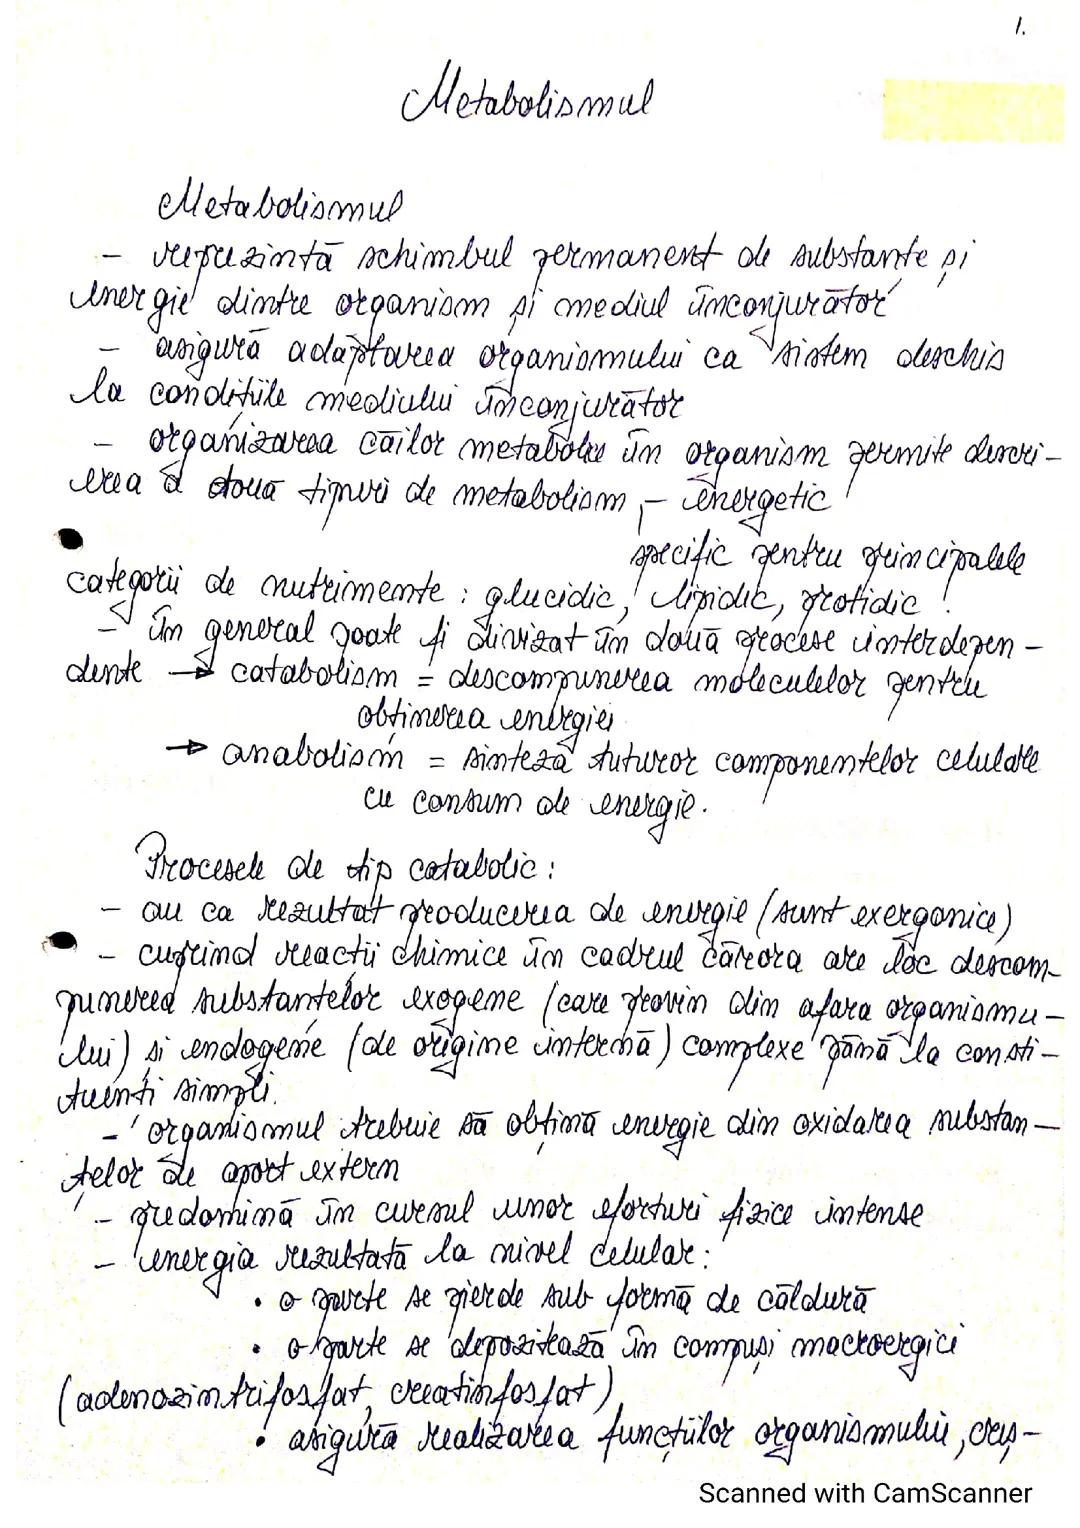 1.
Metabolismul
Metabolismul
- reprezintă schimbul permanent de substanțe și
energie dintre organism și mediul înconjurător
- asigură adaptarea organismului ca sistem deschis
la condițiile mediului înconjurător
- organizarea căilor metabolice în organism permite descri-
erea a două tipuri de metabolism, - energetic
specific pentru principalele
categorii de nutrimente : glucidic, lipidic, protidic !
- în general poate fi divizat în două procese interdepen-
dente → catabolism = descompunerea moleculelor pentru
obținerea energiei
→ anabolism = sinteza tuturor componentelor celulare
cu consum de energie.
Procesele de tip catabolic :
- au ca rezultat producerea de energie (sunt exergonice)
- cuprind reacții chimice în cadrul cărora are loc descom-
punerea substanțelor exogene (care provin din afara organismu-
lui) și endogene (de origine internă) complexe până la consti-
tuenți simpli.
- organismul trebuie să obțină energie din oxidarea substan-
țelor de aport extern
- predomină în cursul unor eforturi fizice intense
- energia rezultată la nivel celular :
• o parte se pierde sub formă de căldură
• o parte se depozitează în compuși macroergici
(adenozintrifosfat, creatinfosfat)
• asigură realizarea funcțiilor organismului, creș-
Scanned with CamScanner